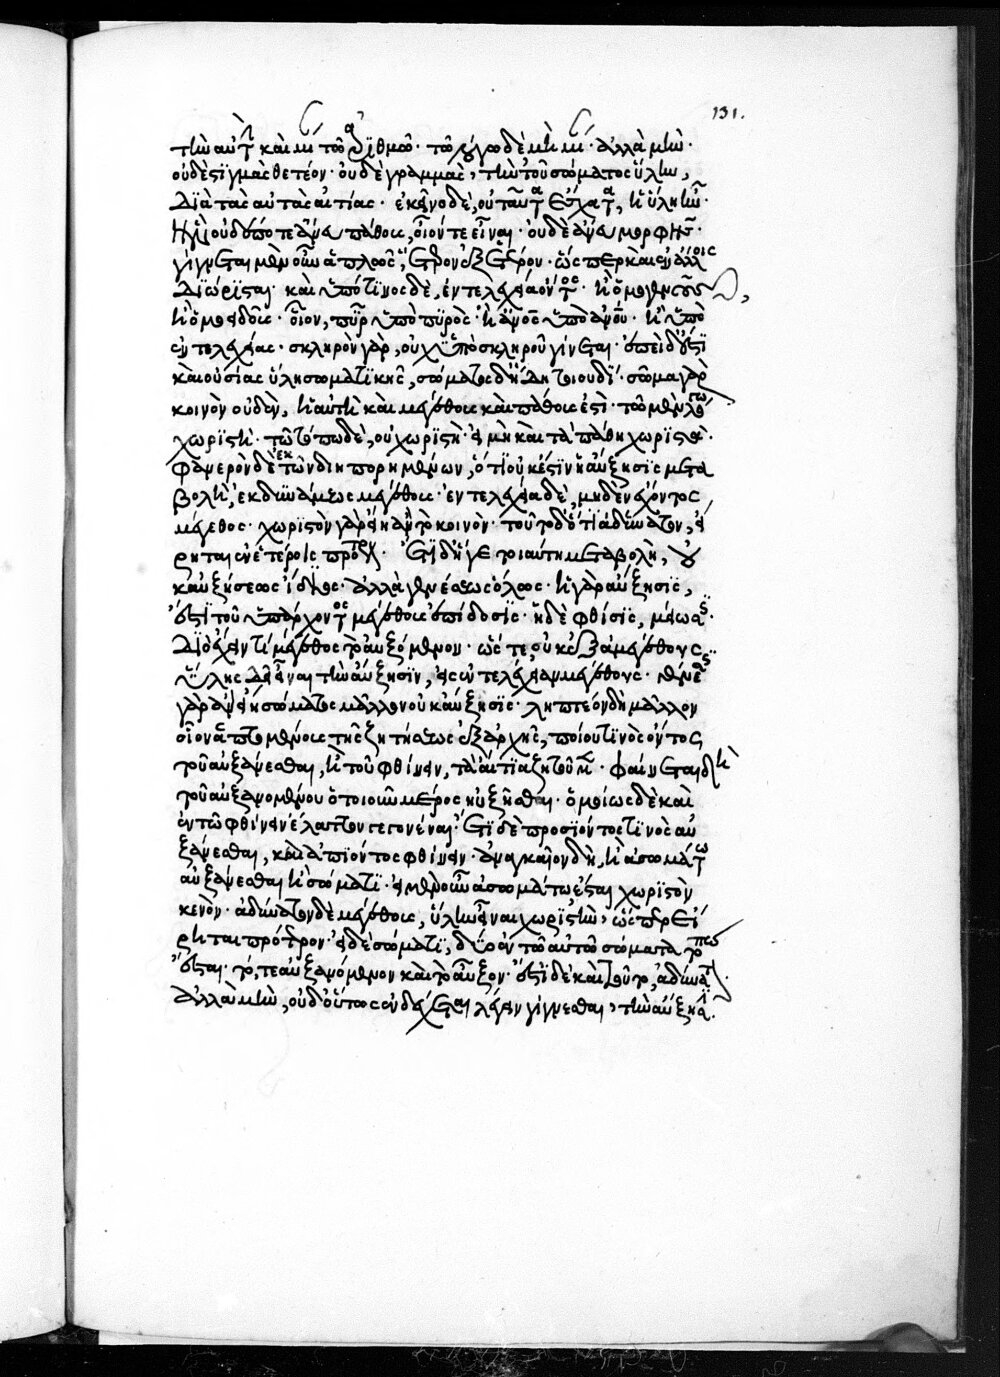 τὴν αὐτὴν καὶ μίαν τῶ ἀριθμῶ· τῶ λόγω δὲ μὴ μίαν· ἀλλὰ μὴν·
οὐδὲ στιγμὰς θετέον· οὐδὲ γραμμὰς, τὴν τοῦ σώματος ὕλην,
διὰ τὰς αὐτὰς αἰτίας· ἐκεῖνο δὲ, οὗ ταῦτα ἔσχατα, ἡ ὕλη ἣν·
ἣν οὐδέποτε ἄνευ πάθους, οἷόν τε εἶναι· οὐδὲ ἄνευ μορφῆς·
γίγνεται μὲν οὖν ἁπλῶς, ἕτερον ἐξ ἑτέρου· ὥσπερ καὶ ἐν ἄλλοις
διώρισται· καὶ ὑπό τινος δὲ, ἐντελεχεία ὄντος· ἢ ὁμογενοῦς,
ἢ ὁμοειδοῦς· οἷον, πῦρ ὑπὸ πυρὸς· ἢ ἄνος ὑπὸ ἀνου· ἢ ὑπὸ
ἐντελεχείας· σκληρὸν γὰρ, οὐχ ὑπὸ σκληροῦ γίνεται· ἐπεὶ δ' ἐστὶ
καὶ οὐσίας ὕλη σωματικῆς, σώματος δ' ἤδη τοιουδί· σῶμα γὰρ
κοινὸν οὐδὲν, ἡ αὐτὴ καὶ μεγέθους καὶ πάθους ἐστὶ· τῶ μὲν λόγω
χωριστὴ· τῶ τόπω δὲ, οὐ χωριστὴ· εἰ μὴ καὶ τὰ πάθη χωριστὰ·
φανερὸν δὲ ἐκ τῶν διηπορημένων, ὅτι οὐκ ἔστιν ἡ αὔξησις μετα
βολὴ, ἐκ δυνάμεως μεγέθους· ἐντελεχεία δὲ, μηδὲν ἔχοντος
μέγεθος· χωριστὸν γὰρ εἴη ἂν τὸ κοινὸν· τοῦτο δ' ὅτι ἀδύνατον, εἴ
ρηται ἐν ἑτέροις πρότερον· ἔτι δ' ἥ γε τοιαύτη μεταβολὴ, οὐ
κ αὐξήσεως ἴδιος· ἀλλὰ γενέσεως ὅλως· ἡ γὰρ αὔξησις,
ἐστὶ τοῦ ὑπάρχοντος μεγέθους ἐπίδοσις· ἡ δὲ φθίσις, μείωσις·
διὸ ἔχειν τι μέγεθος τὸ αὐξόμενον· ὥστε, οὐκ ἐξ ἀμεγέθους
ὕλης δεῖ εἶναι τὴν αὔξησιν, εἰς ἐντελέχειαν μεγέθους· γένεσις
γὰρ ἂν εἴη σώματος μᾶλλον οὐκ αὔξησις· ληπτέον δὴ μᾶλλον
οἷον ἁπτομένοις τῆς ζητήσεως ἐξ ἀρχῆς, ποίου τινὸς ὄντος
τοῦ αὐξάνεσθαι, ἢ τοῦ φθίνειν, τὰ αἴτια ζητοῦμεν· φαίνεται δὴ
τοῦ αὐξανομένου ὁτιοιοῦν μέρος ηὐξῆσθαι· ὁμοίως δὲ καὶ
ἐν τῶ φθίνειν ἔλαττον γεγονέναι· ἔτι δὲ προσιόντος τινὸς αὐ
ξάνεσθαι, καὶ ἀπιόντος φθίνειν· ἀναγκαῖον δὴ, ἢ ἀσωμάτω
αὐξάνεσθαι ἢ σώματι· εἰ μὲν οὖν ἀσωμάτω ἔσται χωριστὸν
κενὸν· ἀδύνατον δὲ μεγέθους, ὕλην εἶναι χωριστὴν, ὥσπερ εἴ
ρηται πρότερον· εἰ δὲ σώματι, δύο ἐν τῶ αὐτῶ σώματα τόπω
ἔσται· τό, τε αὐξανόμενον καὶ τὸ αὖξον· ἔστι δὲ καὶ τοῦτο, ἀδύνατον·
ἀλλὰ μὴν, οὐδ' οὕτως ἐνδέχεται λέγειν γίγνεσθαι, τὴν αὔξησιν·